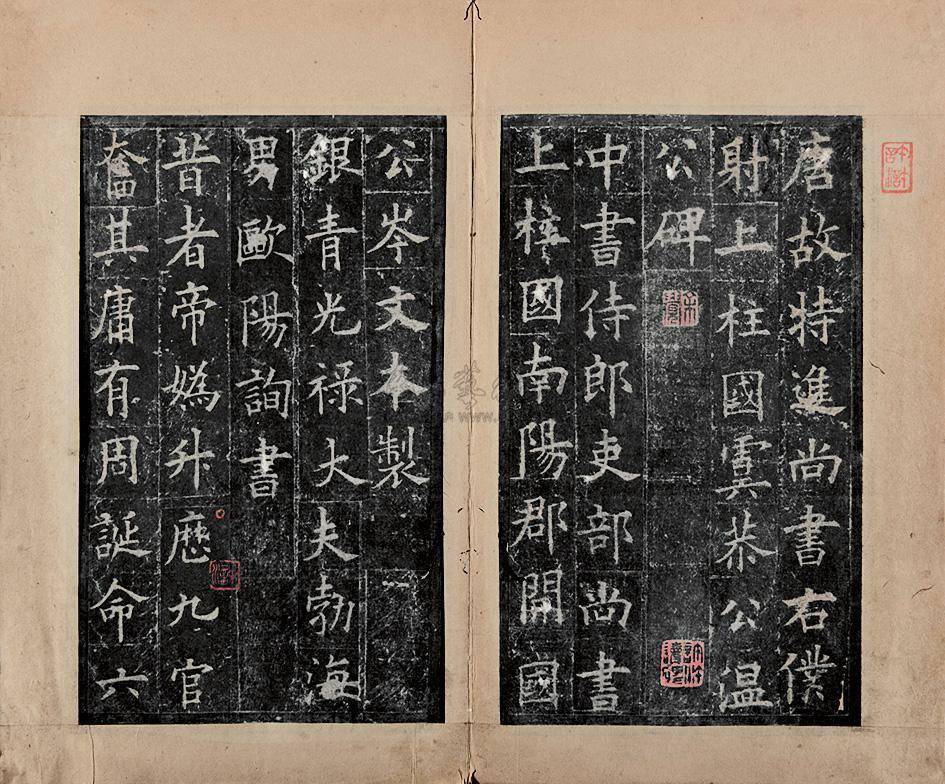 唐故特進尚書右僕
射上柱國虞恭公温
公碑
中書侍郎吏部尚書
上柱國南陽郡開國
公岑文本製
銀青光祿大夫勃海
男歐陽詢書
昔者帝媯升歷九官
奮其庸有周誕命六